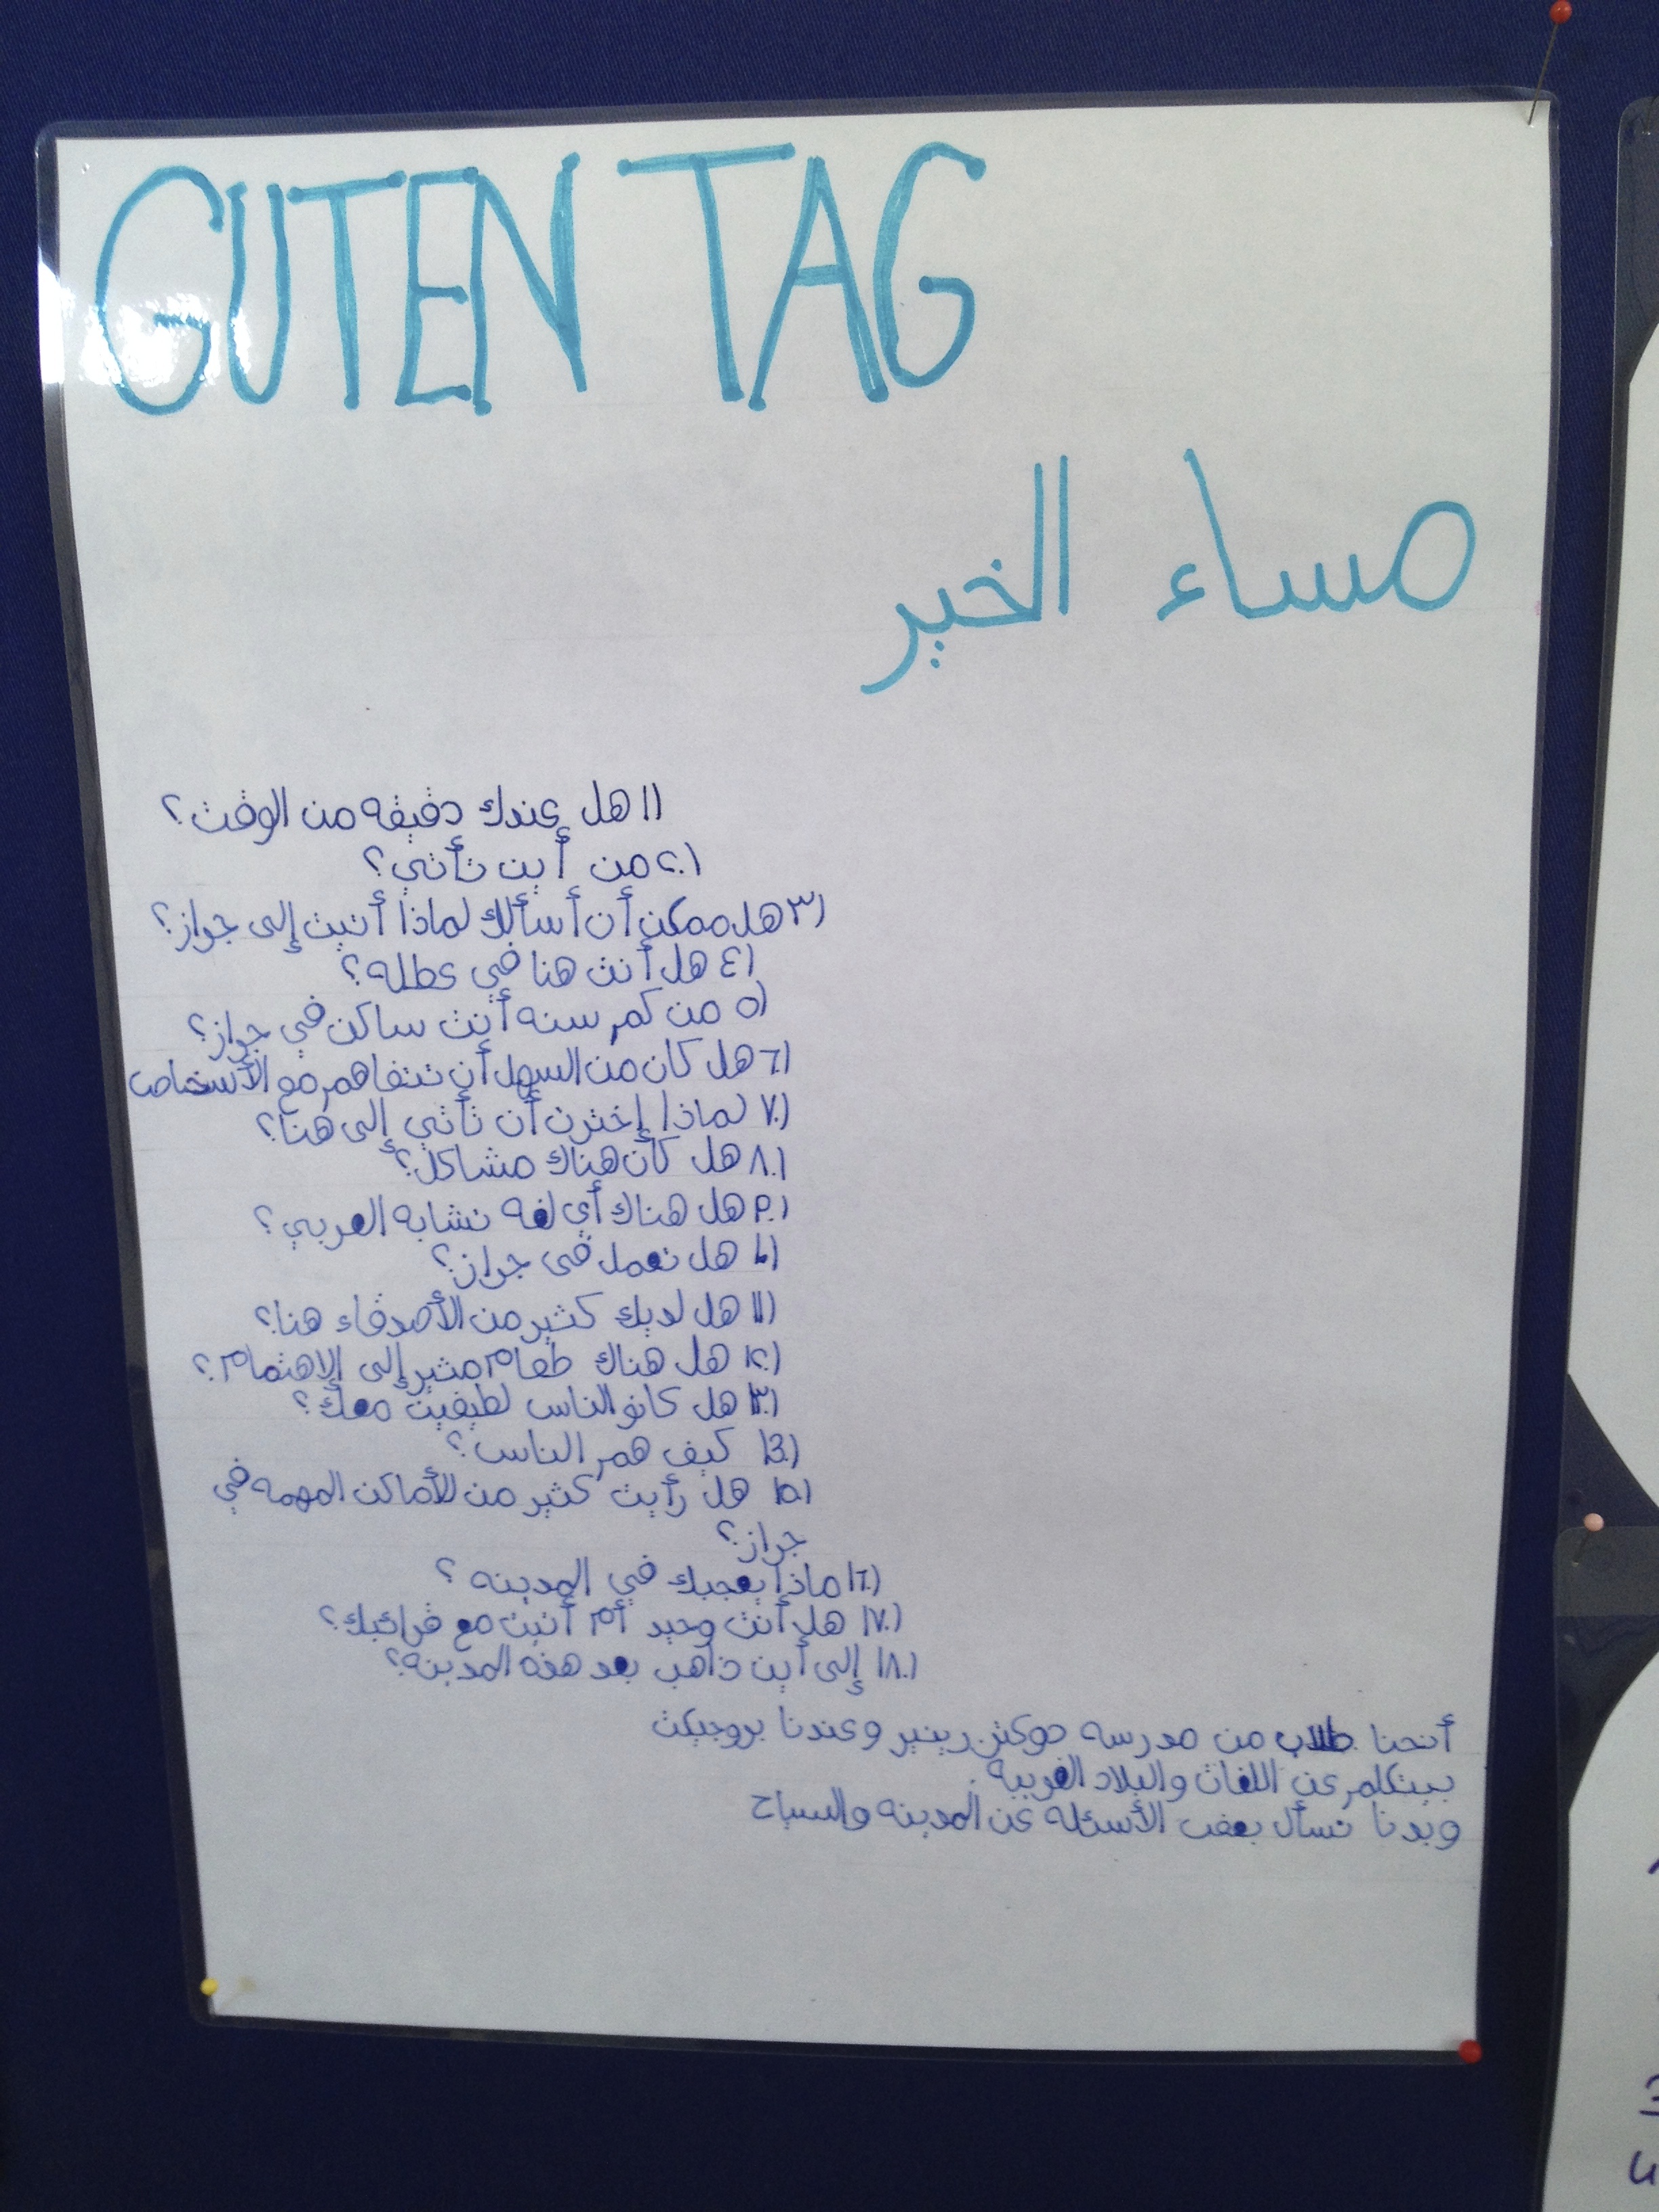 GUTEN TAG
مساء الخير
١) هل عندك دقيقه من الوقت؟
٢.) من أين تأتي؟
٣) هل ممكن أن أسألك لماذا أتيت إلى جراز؟
٤) هل أنت هنا في عطله؟
٥) من كم سنه أنت ساكن في جراز؟
٦.) هل كان من السهل أن تتفاهم مع الأشخاص
٧.) لماذا إخترت أن تأتي إلى هنا؟
٨.) هل كان هناك مشاكل؟
٩.) هل هناك أي لغه تشابه العربي؟
١٠) هل تعمل في جراز؟
١١) هل لديك كثير من الأصدقاء هنا؟
١٢.) هل هناك طعام مثير إلى الإهتمام؟
١٣.) هل كانو الناس لطيفين معك؟
١٤.) كيف هم الناس؟
١٥.) هل رأيت كثير من الأماكن المهمه في
جراز؟
١٦.) ماذا يعجبك في المدينه ؟
١٧.) هل أنت وحيد أم أتيت مع قرائبك؟
١٨.) إلى أين ذاهب بعد هذه المدينه؟
أنحنا طلاب من مدرسه دوكتر رينير وعندنا بروجيكت
بيتكلم عن اللغات والبلاد الغريبه.
وبدنا نسأل بعض الأسئله عن المدينه والسياح